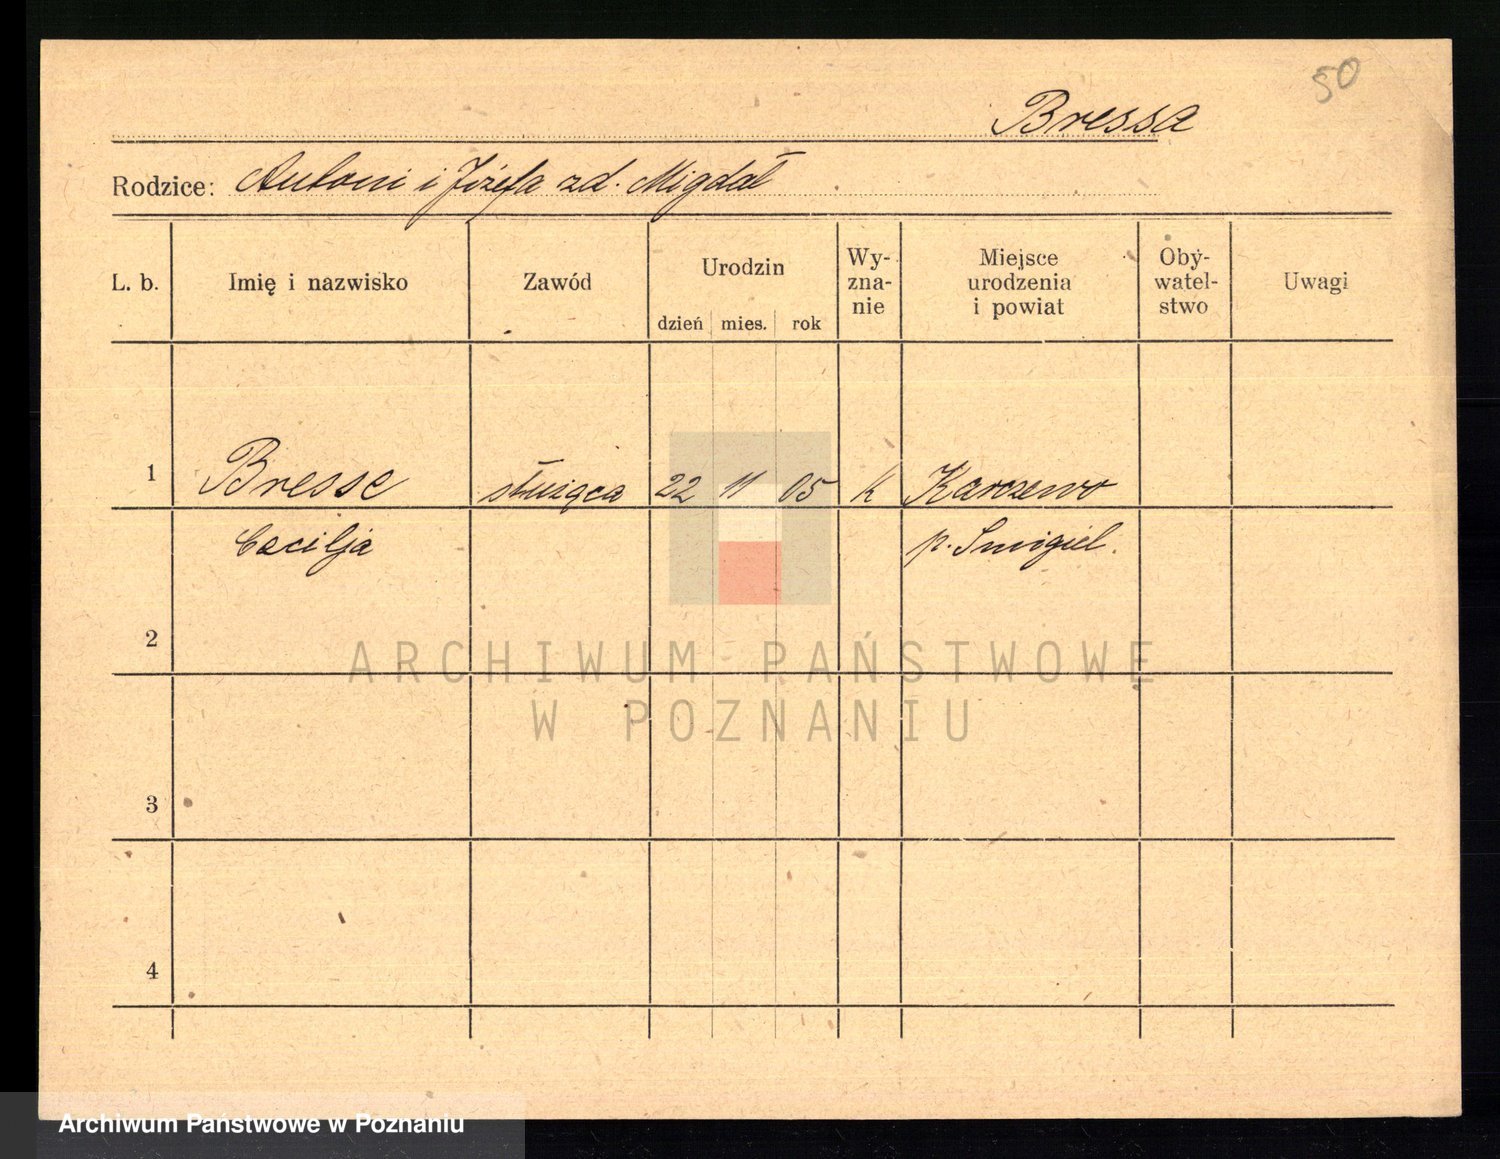 50
Bressa
Rodzice: Antoni i Józefa zd. Migdał
L. b. Imię i nazwisko Zawód Urodzin dzień mies. rok Wy-zna-nie Miejsce urodzenia i powiat Oby-watel-stwo Uwagi
1 Bresse służąca 22 11 05 k Karczewo
Cecilja p. Smigiel.
2
ARCHIWUM PAŃSTWOWE
W POZNANIU
3
4
Archiwum Państwowe w Poznaniu